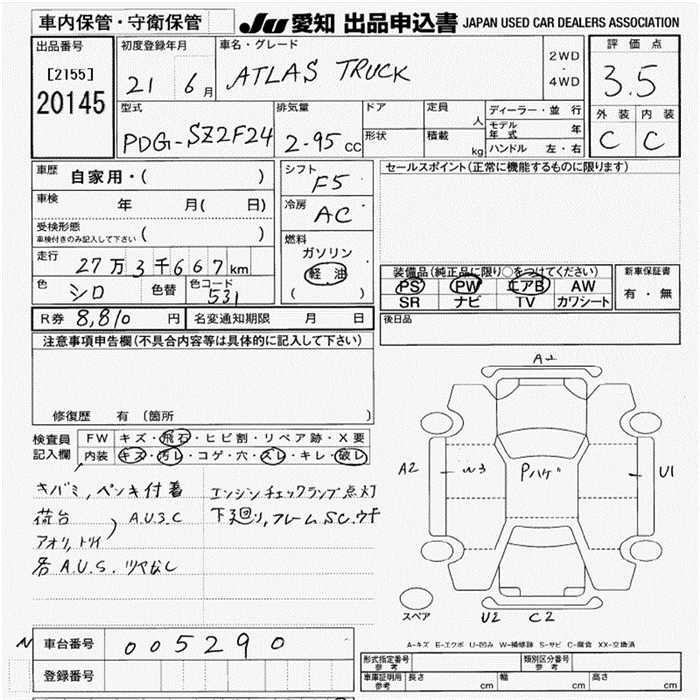 車内保管・守衛保管
JU 愛知 出品申込書 JAPAN USED CAR DEALERS ASSOCIATION
出品番号
[2155]
20145
初度登録年月
21 6月
車名・グレード
ATLAS TRUCK
2WD
・
4WD
評価点
3.5
外装 内装
C C
型式
PDG-SZ2F24
排気量
2-95 CC
ドア
形状
定員 人
積載 kg
ディーラー・並行
モデル年式 年
ハンドル 左・右
車歴 自家用・( )
車検 年 月( 日)
受検形態
車検付きのみ記入して下さい ( )
走行 27万3千667km
色 シロ 色替 色コード 531
シフト F5
冷房 AC
燃料
ガソリン
軽油
( )
セールスポイント(正常に機能するものに限ります)
装備品(純正品に限り○をつけてください)
PS PW エアB AW
SR ナビ TV カワシート
新車保証書
有・無
R券 8,810 円 名変通知期限 月 日
後日品
注意事項申告欄(不具合内容等は具体的に記入して下さい)
修復歴 有 〔箇所 〕
検査員記入欄
FW キズ・飛石・ヒビ割・リペア跡・X要
内装 キズ・汚レ・コゲ・穴・スレ・キレ・破レ
キバミ,ペンキ付着
荷台
アオリ,トリイ
A.U3.C
各A.U.S.ツヤなし
エンジンチェックランプ点灯
下廻り,フレームSC.ウキ
A2
A2
W3
Pハゲ
U1
スペア
U2 C2
A-キズ E-エクボ U-凹み W-補修跡 S-サビ C-腐食 XX-交換済
N 車台番号 005290
登録番号
形式指定番号 参考
類別区分番号 参考
車庫証明用 参考 長さ cm 幅 cm 高さ cm